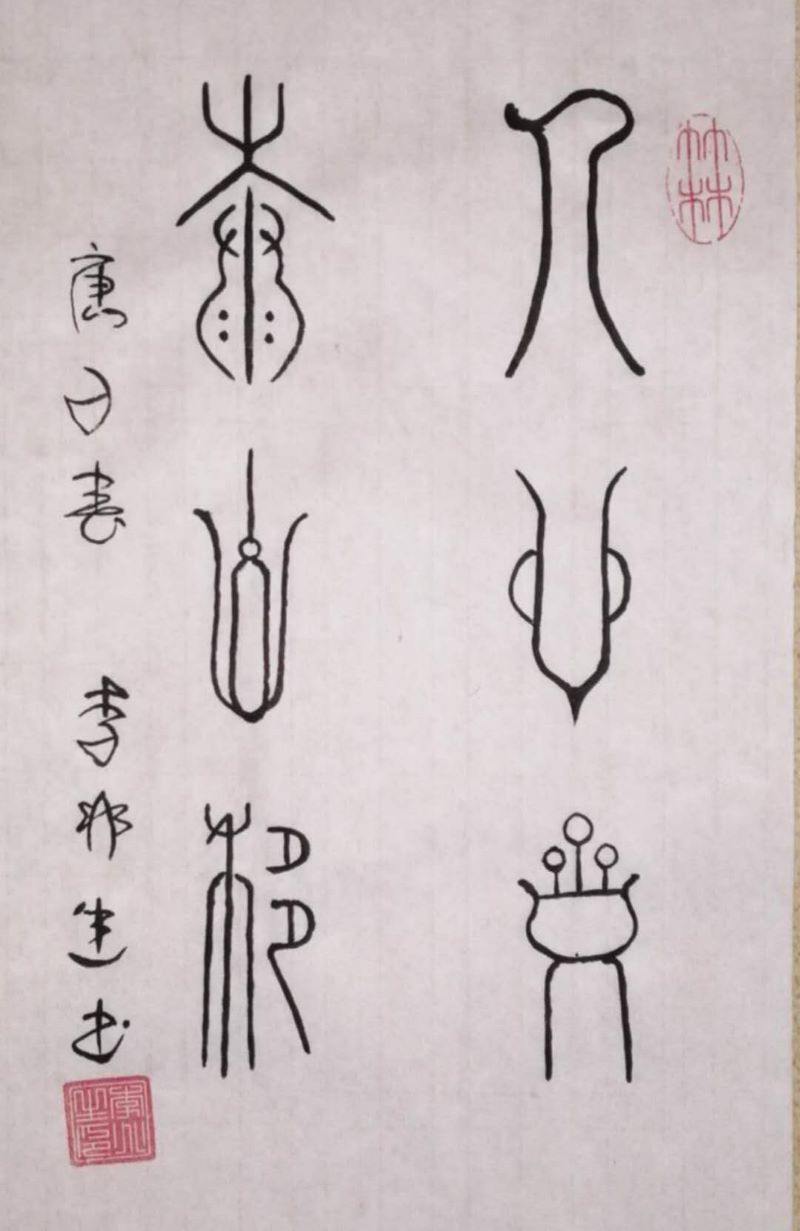 人心齊
泰山移
庚子春 李邦建书